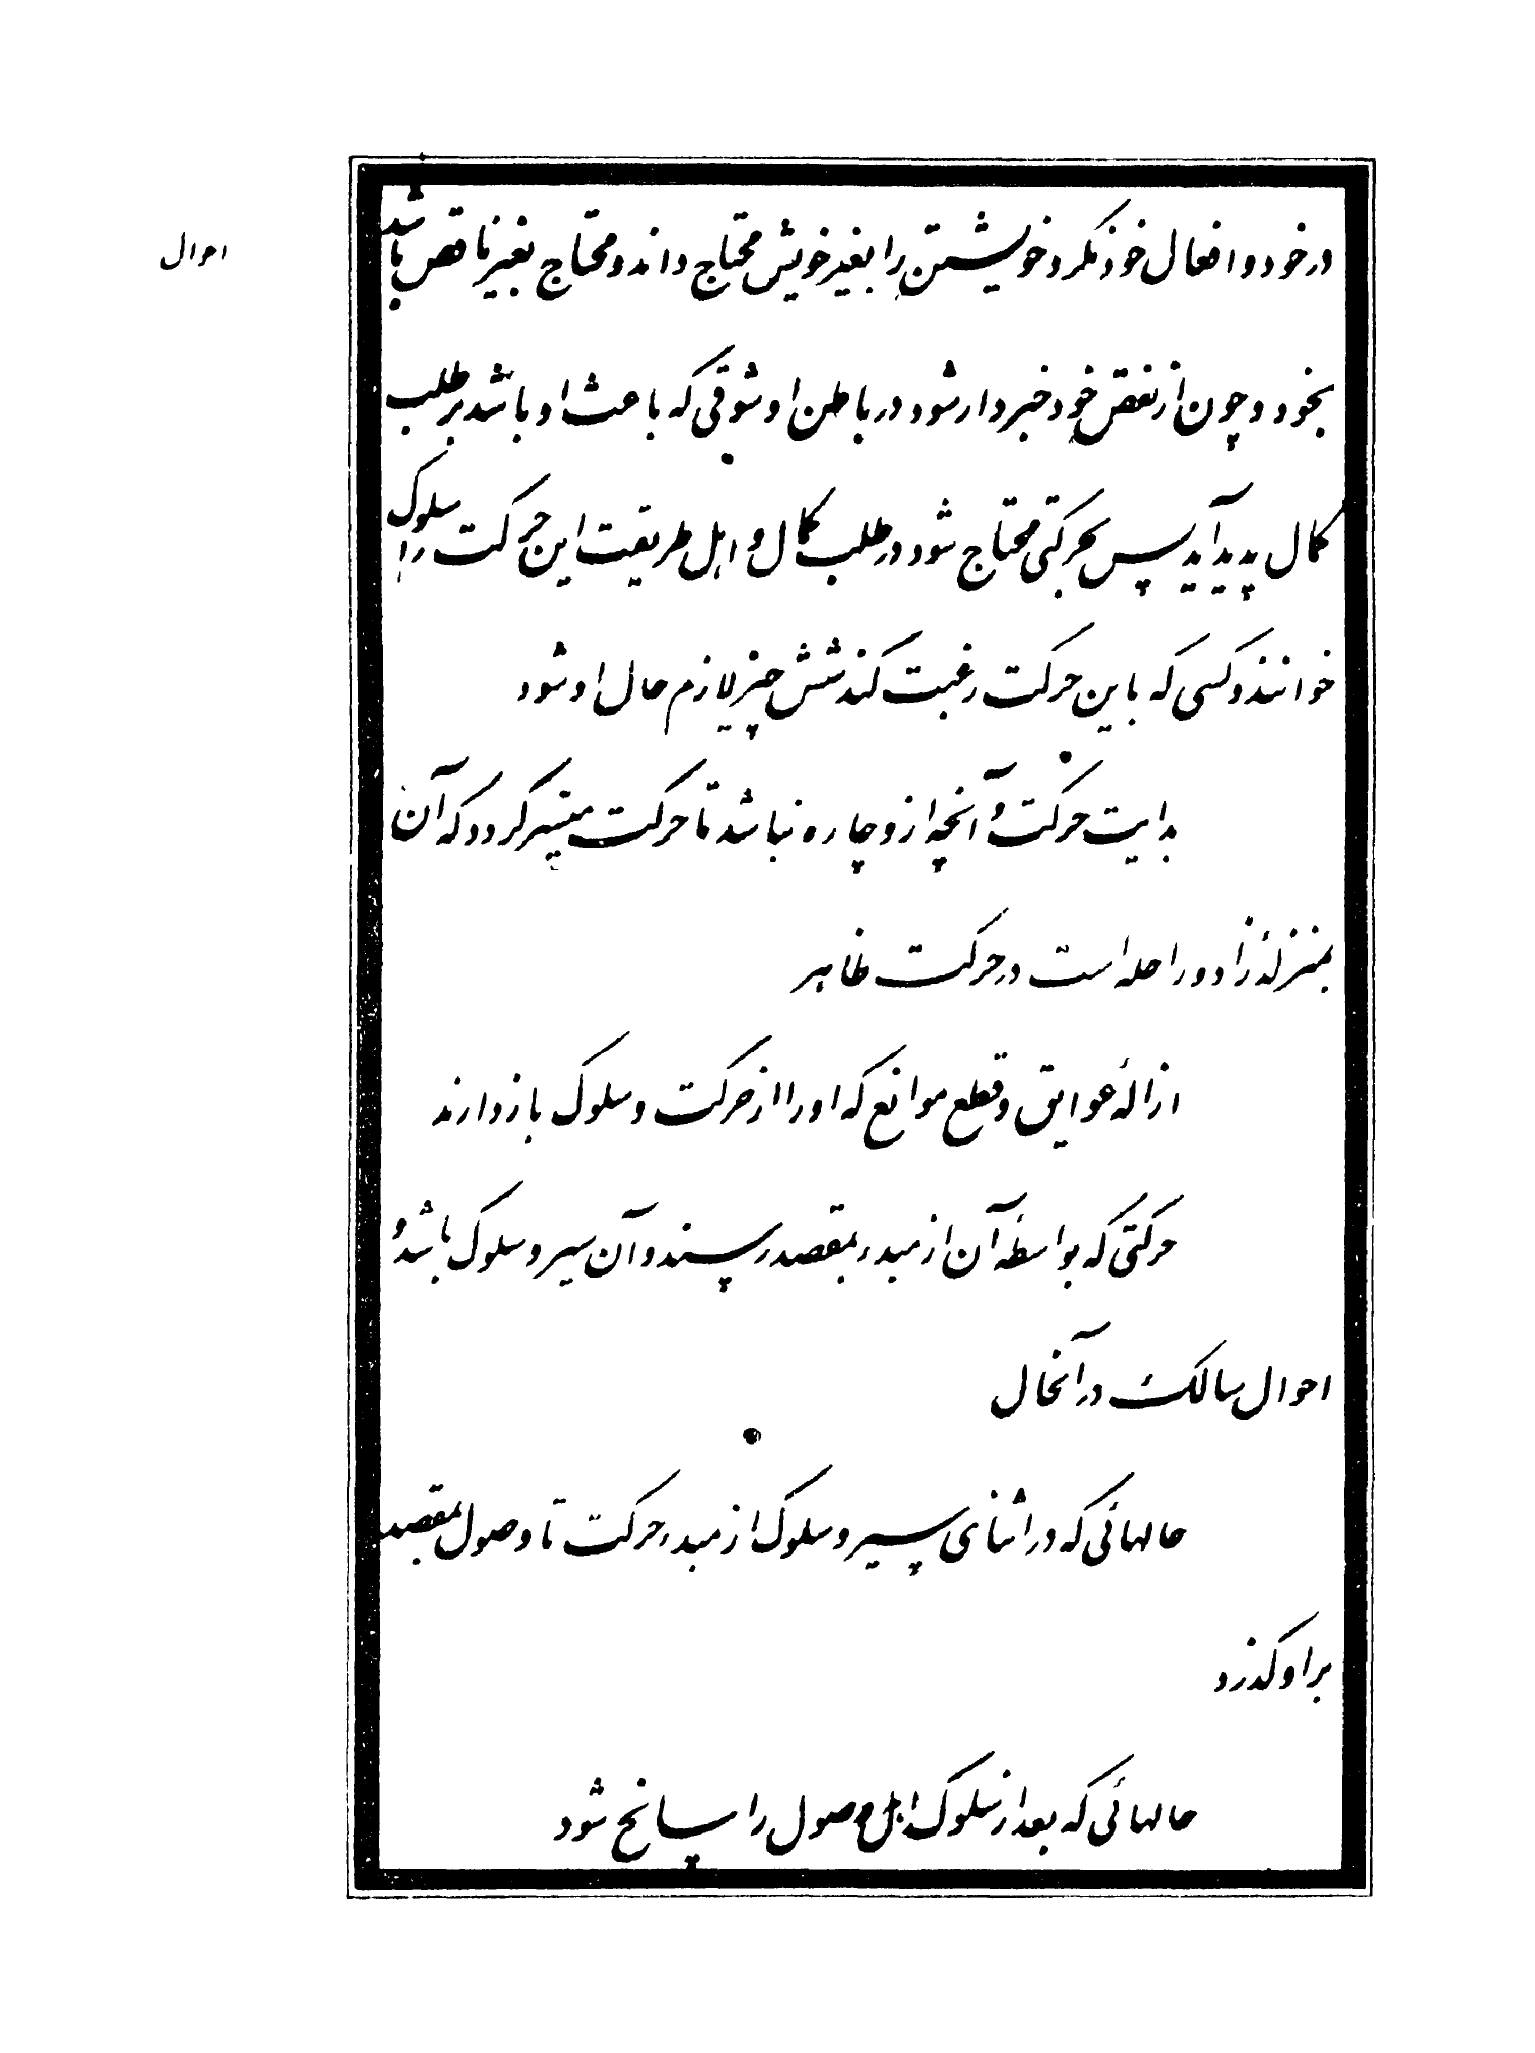 احوال
در خود و افعال خود نگرد خویشتن را بغیر خویش محتاج داند و محتاج بغیر ناقص باشد
بخود و چون از نقص خود خبردار شود در باطن او شوقی که باعث او باشد بر طلب
کمال پدید آید پس بحرکتی محتاج شود در طلب کمال و اهل طریقت این حرکت را سلوک
خوانند و کسی که باین حرکت رغبت کند شش چیز لازم حال او شود
بدایت حرکت و آنچه ازو چاره نباشد تا حرکت میسر گردد که آن
بمنزلهٔ زاد و راحله است در حرکت ظاهر
ازالهٔ عوایق و قطع موانع که او را از حرکت و سلوک باز دارند
حرکتی که بواسطهٔ آن از مبدء بمقصد رسند و آن سیر و سلوک باشد و
احوال سالک در آنحال
حالهائی که در اثنای سیر و سلوک از مبدء حرکت تا وصول بمقصد
بر او گذرد
حالهائی که بعد از سلوک اهل وصول را سانح شود